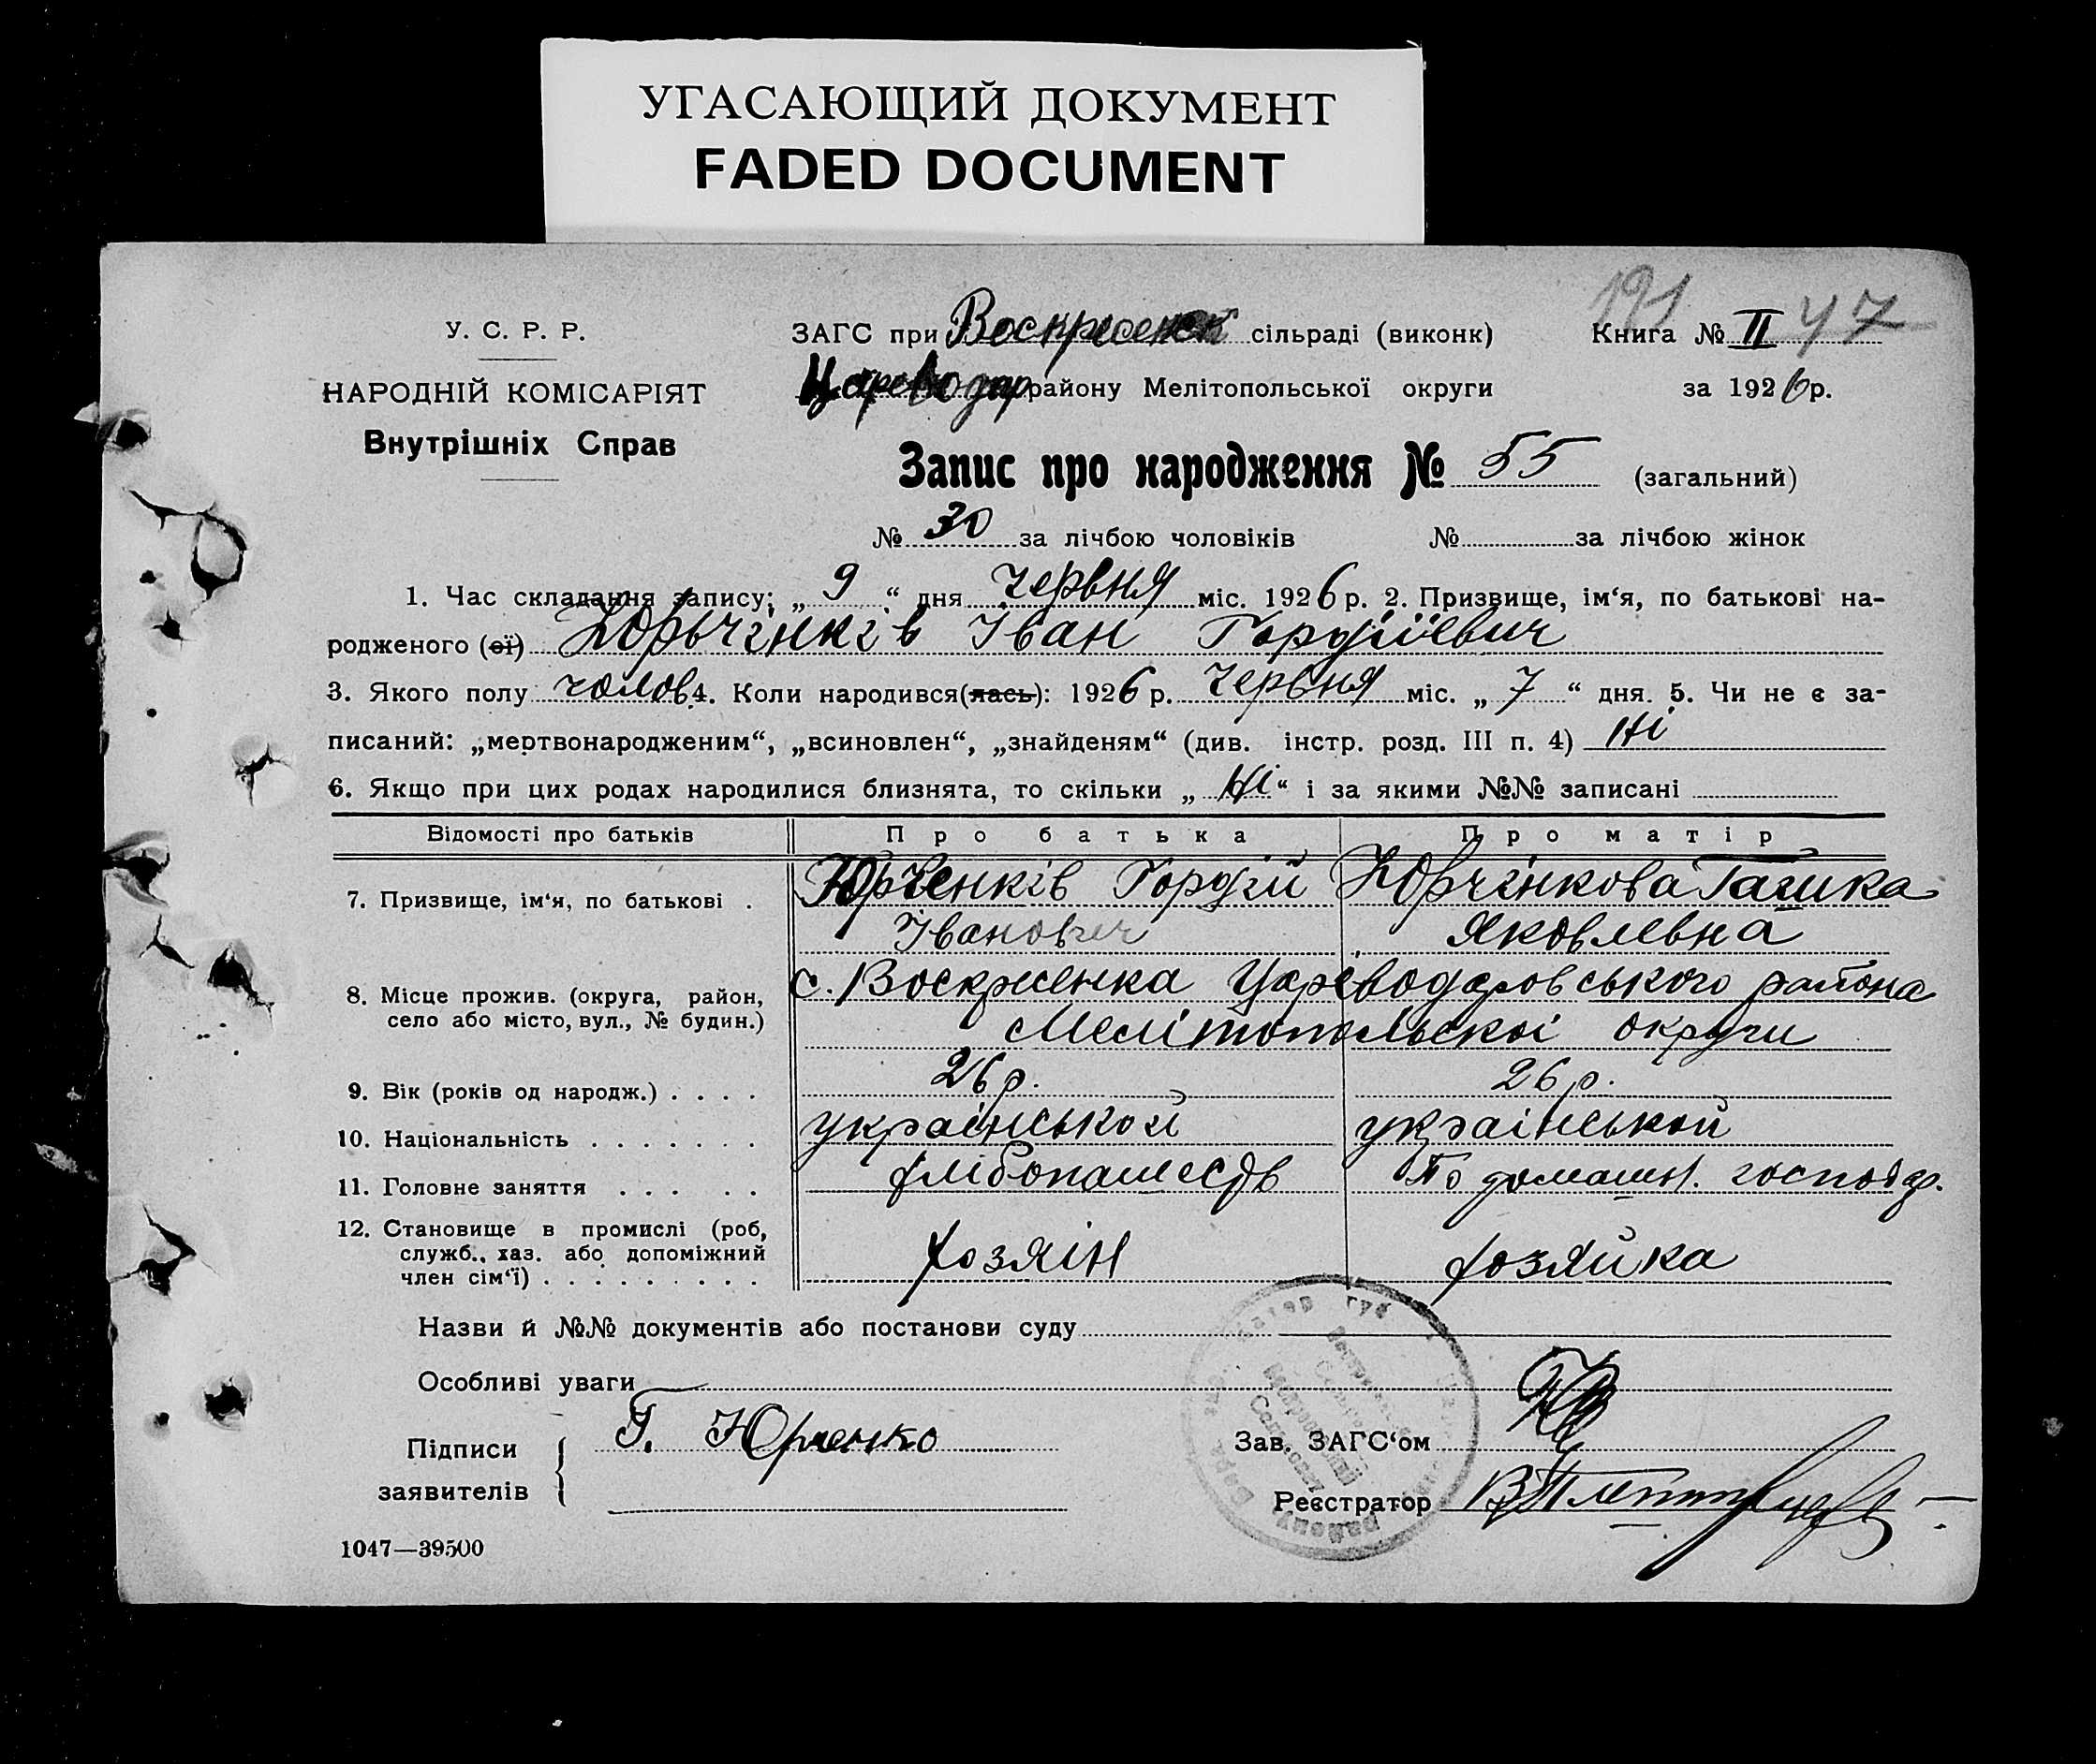 УГАСАЮЩИЙ ДОКУМЕНТ
FADED DOCUMENT
191
У. С. Р. Р.
ЗАГС при Воскресенск сільраді (виконк)
Книга № II 47
НАРОДНІЙ КОМІСАРІЯТ
Цареводар району Мелітопольської округи
за 1926 р.
Внутрішніх Справ
Запис про народження № 55 (загальний)
№ 30 за лічбою чоловіків № за лічбою жінок
1. Час складання запису; „ 9 “ дня червня міс. 1926 р. 2. Призвище, ім‘я, по батькові на-
родженого (ої) Юрьченків Іван Гордіїевич
3. Якого полу чолов 4. Коли народився(лась): 1926 р. червня міс. „ 7 “ дня. 5. Чи не є за-
писаний: „мертвонародженим“, „всиновлен“, „знайденям“ (див. інстр. розд. III п. 4) ні
6. Якщо при цих родах народилися близнята, то скільки „ ні “ і за якими №№ записані
Відомості про батьків Про батька Про матір
7. Призвище, ім‘я, по батькові . Юрченків Гордій Юрченкова Гашка
Іванович Яковлевна
8. Місце прожив. (округа, район, с. Воскресенка Цареводаровського района
село або місто, вул., № будин.) Мелітопольскоі округи
9. Вік (років од народж.) . . . . 26 р. 26 р.
10. Національність . . . . . . . україньской україньской
11. Головне заняття . . . . . По домашн. господар.
12. Становище в промислі (роб,
служб., хаз. або допоміжний хозяін хозяйка
член сім‘ї) . . . . . . . . .
Назви й №№ документів або постанови суду
Особливі уваги
Підписи Г. Юрченко
заявителів
Зав. ЗАГС‘ом
Реєстратор
району
1047—39500